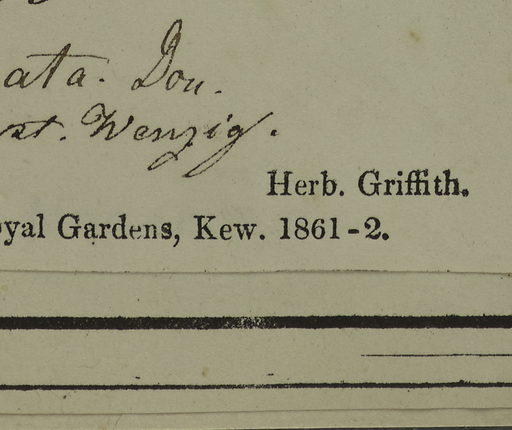 ata. Don.
st. Wenzig.
Herb. Griffith.
yal Gardens, Kew. 1861-2.